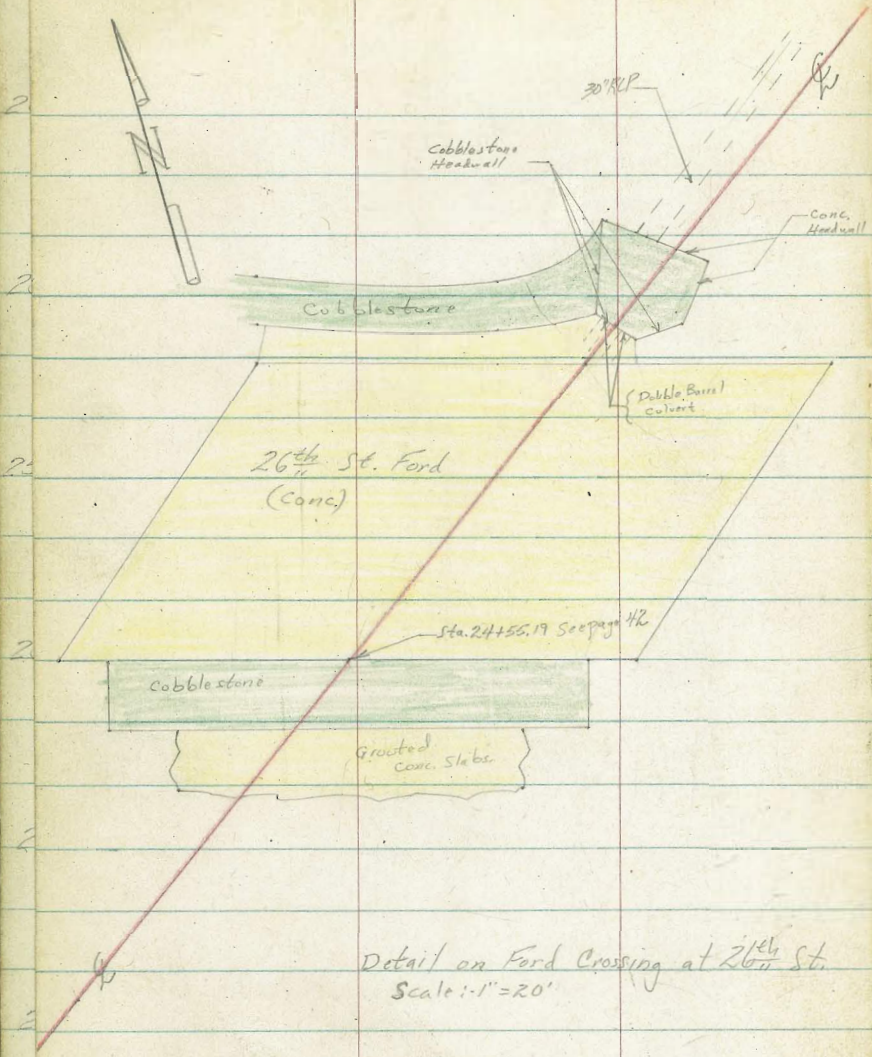 N
℄
30"RCP
Cobblestone
Headwall
Conc.
Headwall
Cobblestone
Double Barrel
Culvert
26th St. Ford
(Conc.)
Sta. 24+55.19 See page 42
Cobblestone
Grouted
Conc. Slabs.
℄
Detail on Ford Crossing at 26th St.
Scale:-1"=20'